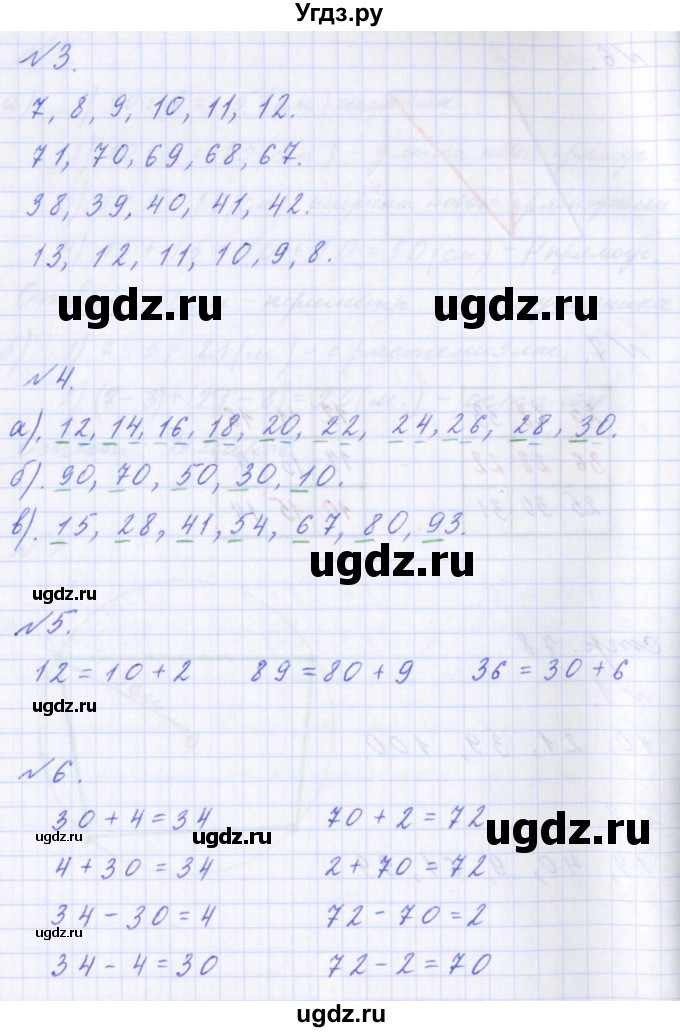 Угдз.ру
№3.
7, 8, 9, 10, 11, 12.
71, 70, 69, 68, 67.
38, 39, 40, 41, 42.
13, 12, 11, 10, 9, 8.
ugdz.ru ugdz.ru
№4.
а). 12, 14, 16, 18, 20, 22, 24, 26, 28, 30.
б). 90, 70, 50, 30, 10.
в). 15, 28, 41, 54, 67, 80, 93.
ugdz.ru
ugdz.ru
№5.
12 = 10 + 2 89 = 80 + 9 36 = 30 + 6
ugdz.ru
№6.
30 + 4 = 34 70 + 2 = 72
ugdz.ru ugdz.ru ugdz.ru
4 + 30 = 34 2 + 70 = 72
34 - 30 = 4 72 - 70 = 2
ugdz.ru
34 - 4 = 30 72 - 2 = 70
ugdz.ru